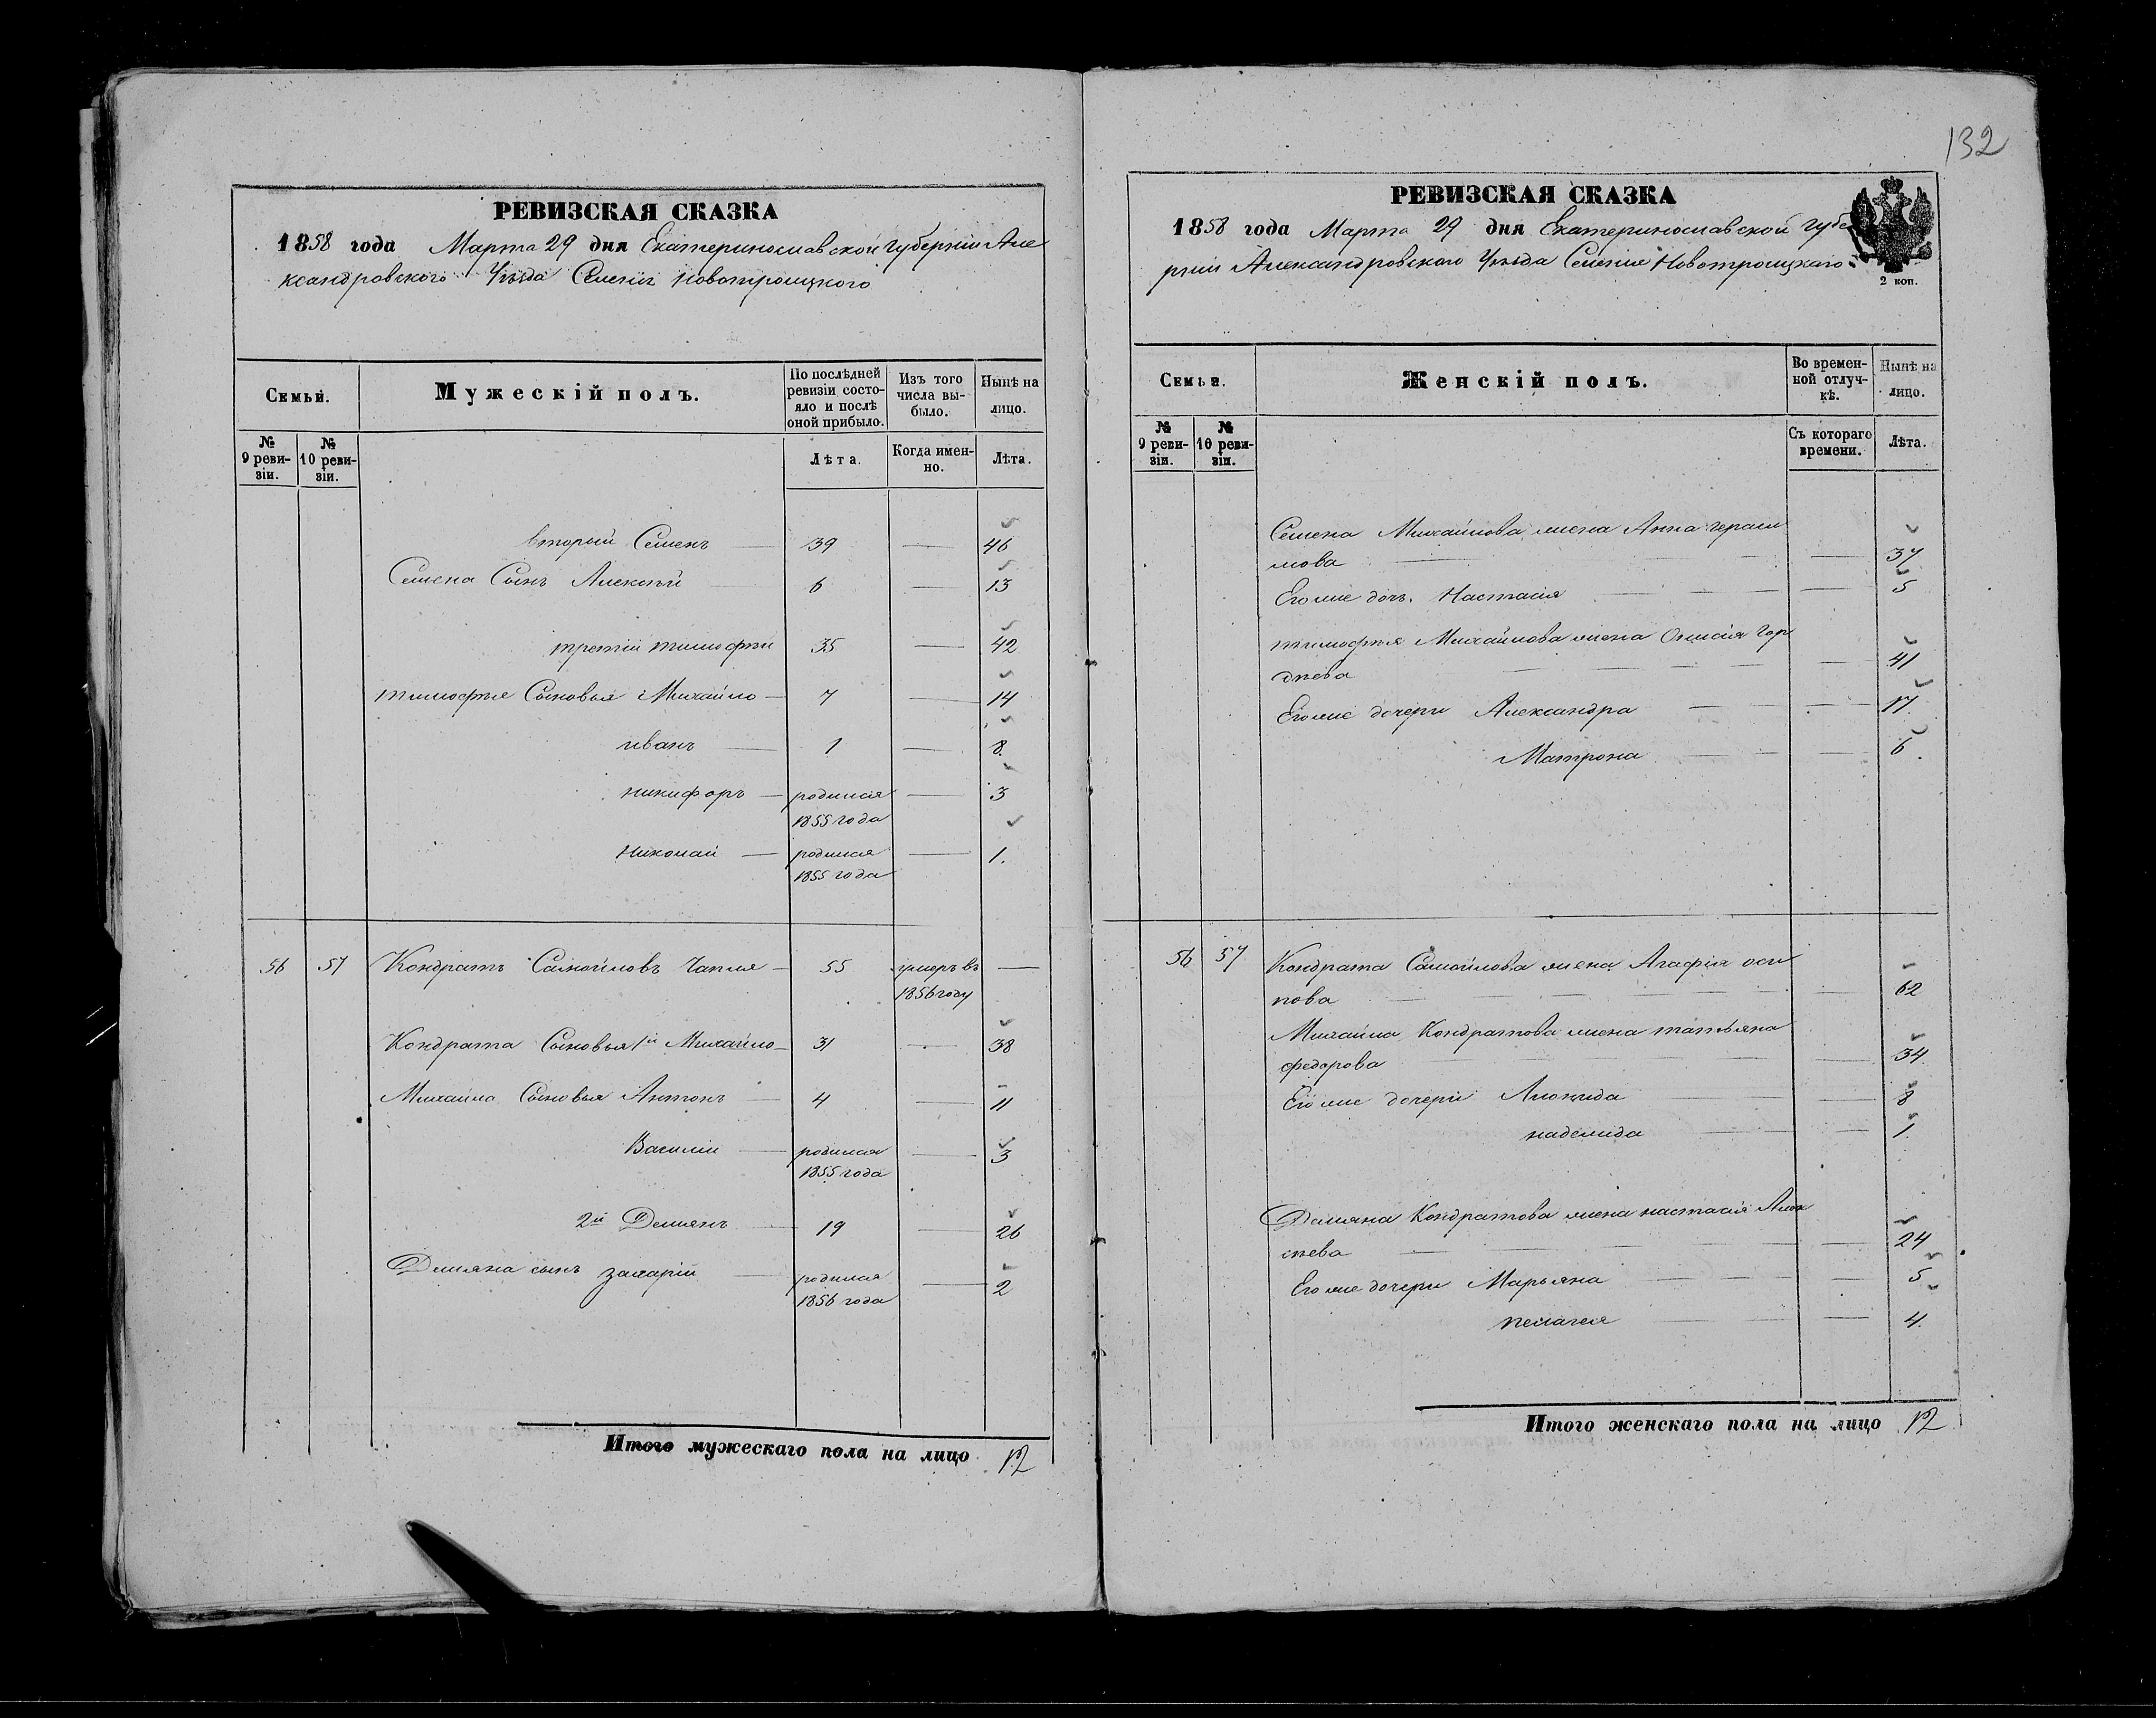 132
РЕВИЗСКАЯ СКАЗКА
1858 года Марта 29 дня Екатеринославской губернии Але
ксандровского Уѣзда Селенія Новотроицкого
Семьи. Мужескій полъ. По послѣдней ревизіи состояло и послѣ оной прибыло. Изъ того числа выбыло. Нынѣ на лицо.
№ 9 ревизіи. № 10 ревизіи. Лѣта. Когда именно. Лѣта.
вторый Семенъ — 39 — 46
Семена Сынъ Алексѣй — 6 — 13
третій тимофѣй 35 — 42
тимофѣя Сыновья Михайло — 7 — 14
иванъ — 1 — 8.
никифоръ — родился — 3
1855 года
Николай — родился — 1.
1855 года
56 57 Кондратъ Самойловъ Чапля — 55 умеръ въ —
1856 году
Кондрата Сыновья 1й Михайло — 31 — 38
Михайла Сыновья Антонъ — 4 — 11
Василій — родился — 3
1855 года
2й Демянъ — 19 — 26
Демяна сынъ захарій — родился — 2
1856 года
Итого мужескаго пола на лицо 12
РЕВИЗСКАЯ СКАЗКА
1858 года Марта 29 дня Екатеринославской Губе
рніи Александровского Уѣзда Селенія Новотроицкаго
2 коп.
Семьи. Женскій полъ. Во временной отлучкѣ. Нынѣ на лицо.
№ 9 ревизіи. № 10 ревизіи. Съ котораго времени. Лѣта.
Семена Михайлова жена Анна гераси
мова — — 37
Его же дочь. Настасія — — 5
тимофѣя Михайлова жена Гор
дѣева — — 41
Его же дочери Александра — — 17.
Матрона — — 6.
56 57 Кондрата Самойлова жена Агафія оси
пова — — 62
Михайла Кондратова жена татьяна
федорова — — 34.
Его же дочери — 8
надежда — — 1.
Демяна Кондратова жена настасія Алек
сѣева — — 24
Его же дочери Марьяна — — 5
пелагея — — 4.
Итого женскаго пола на лицо 12